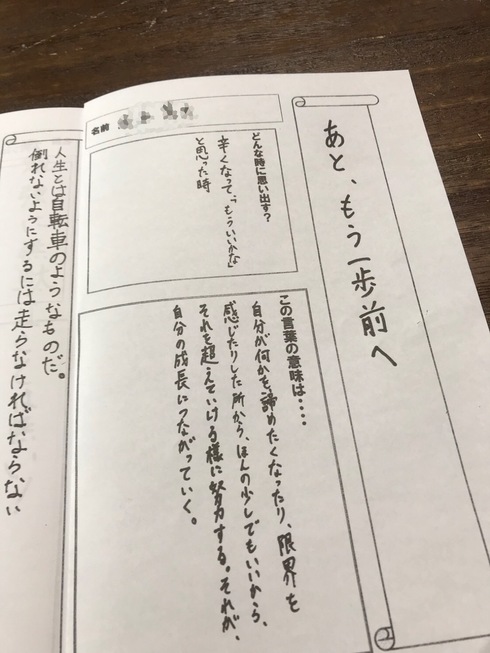 あと、もう一歩前へ
名前
どんな時に思い出す?
辛くなって、「もういいかな」
と思った時
この言葉の意味は・・・・
自分が何かを諦めたくなったり、限界を
感じたりした所から、ほんの少しでもいいから、
それを超えていける様に努力する。それが、
自分の成長につながっていく。
人生とは自転車のようなものだ。
倒れないようにするには走らなければならない